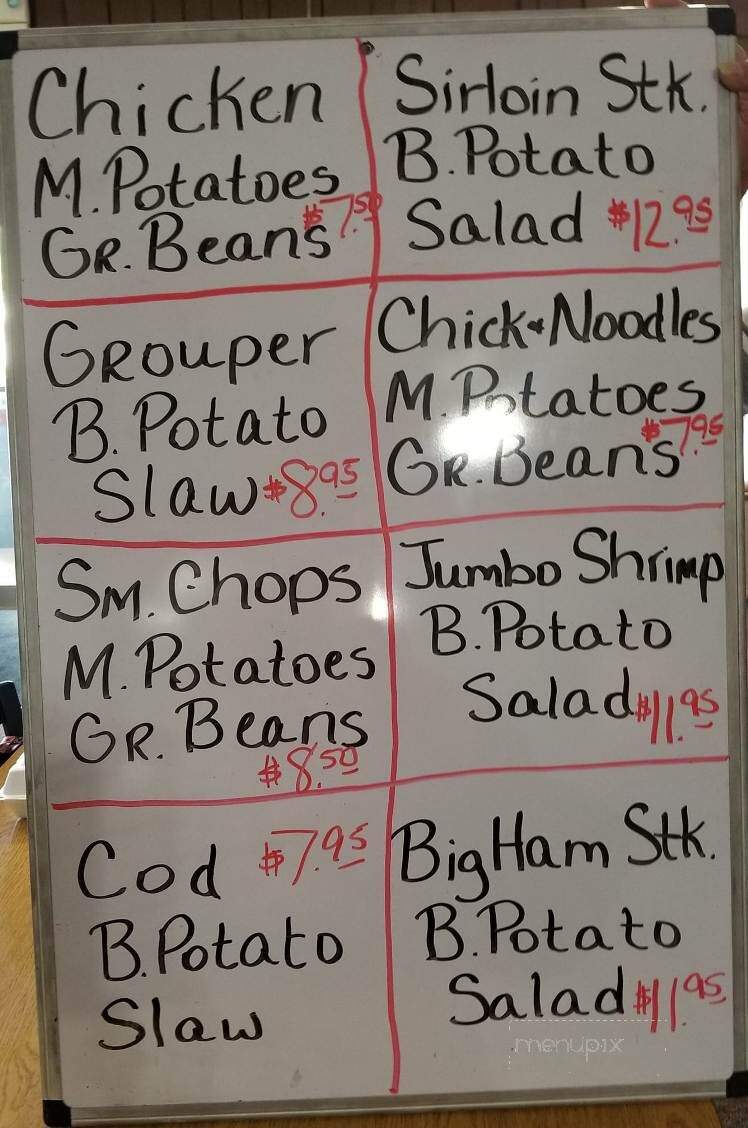 Chicken
M. Potatoes
Gr. Beans $7.50
Sirloin Stk.
B. Potato
Salad $12.95
Grouper
B. Potato
Slaw $8.95
Chick & Noodles
M. Potatoes
Gr. Beans $7.95
Sm. Chops
M. Potatoes
Gr. Beans
$8.50
Jumbo Shrimp
B. Potato
Salad $11.95
Cod $7.95
B. Potato
Slaw
Big Ham Stk.
B. Potato
Salad $11.95
menupix